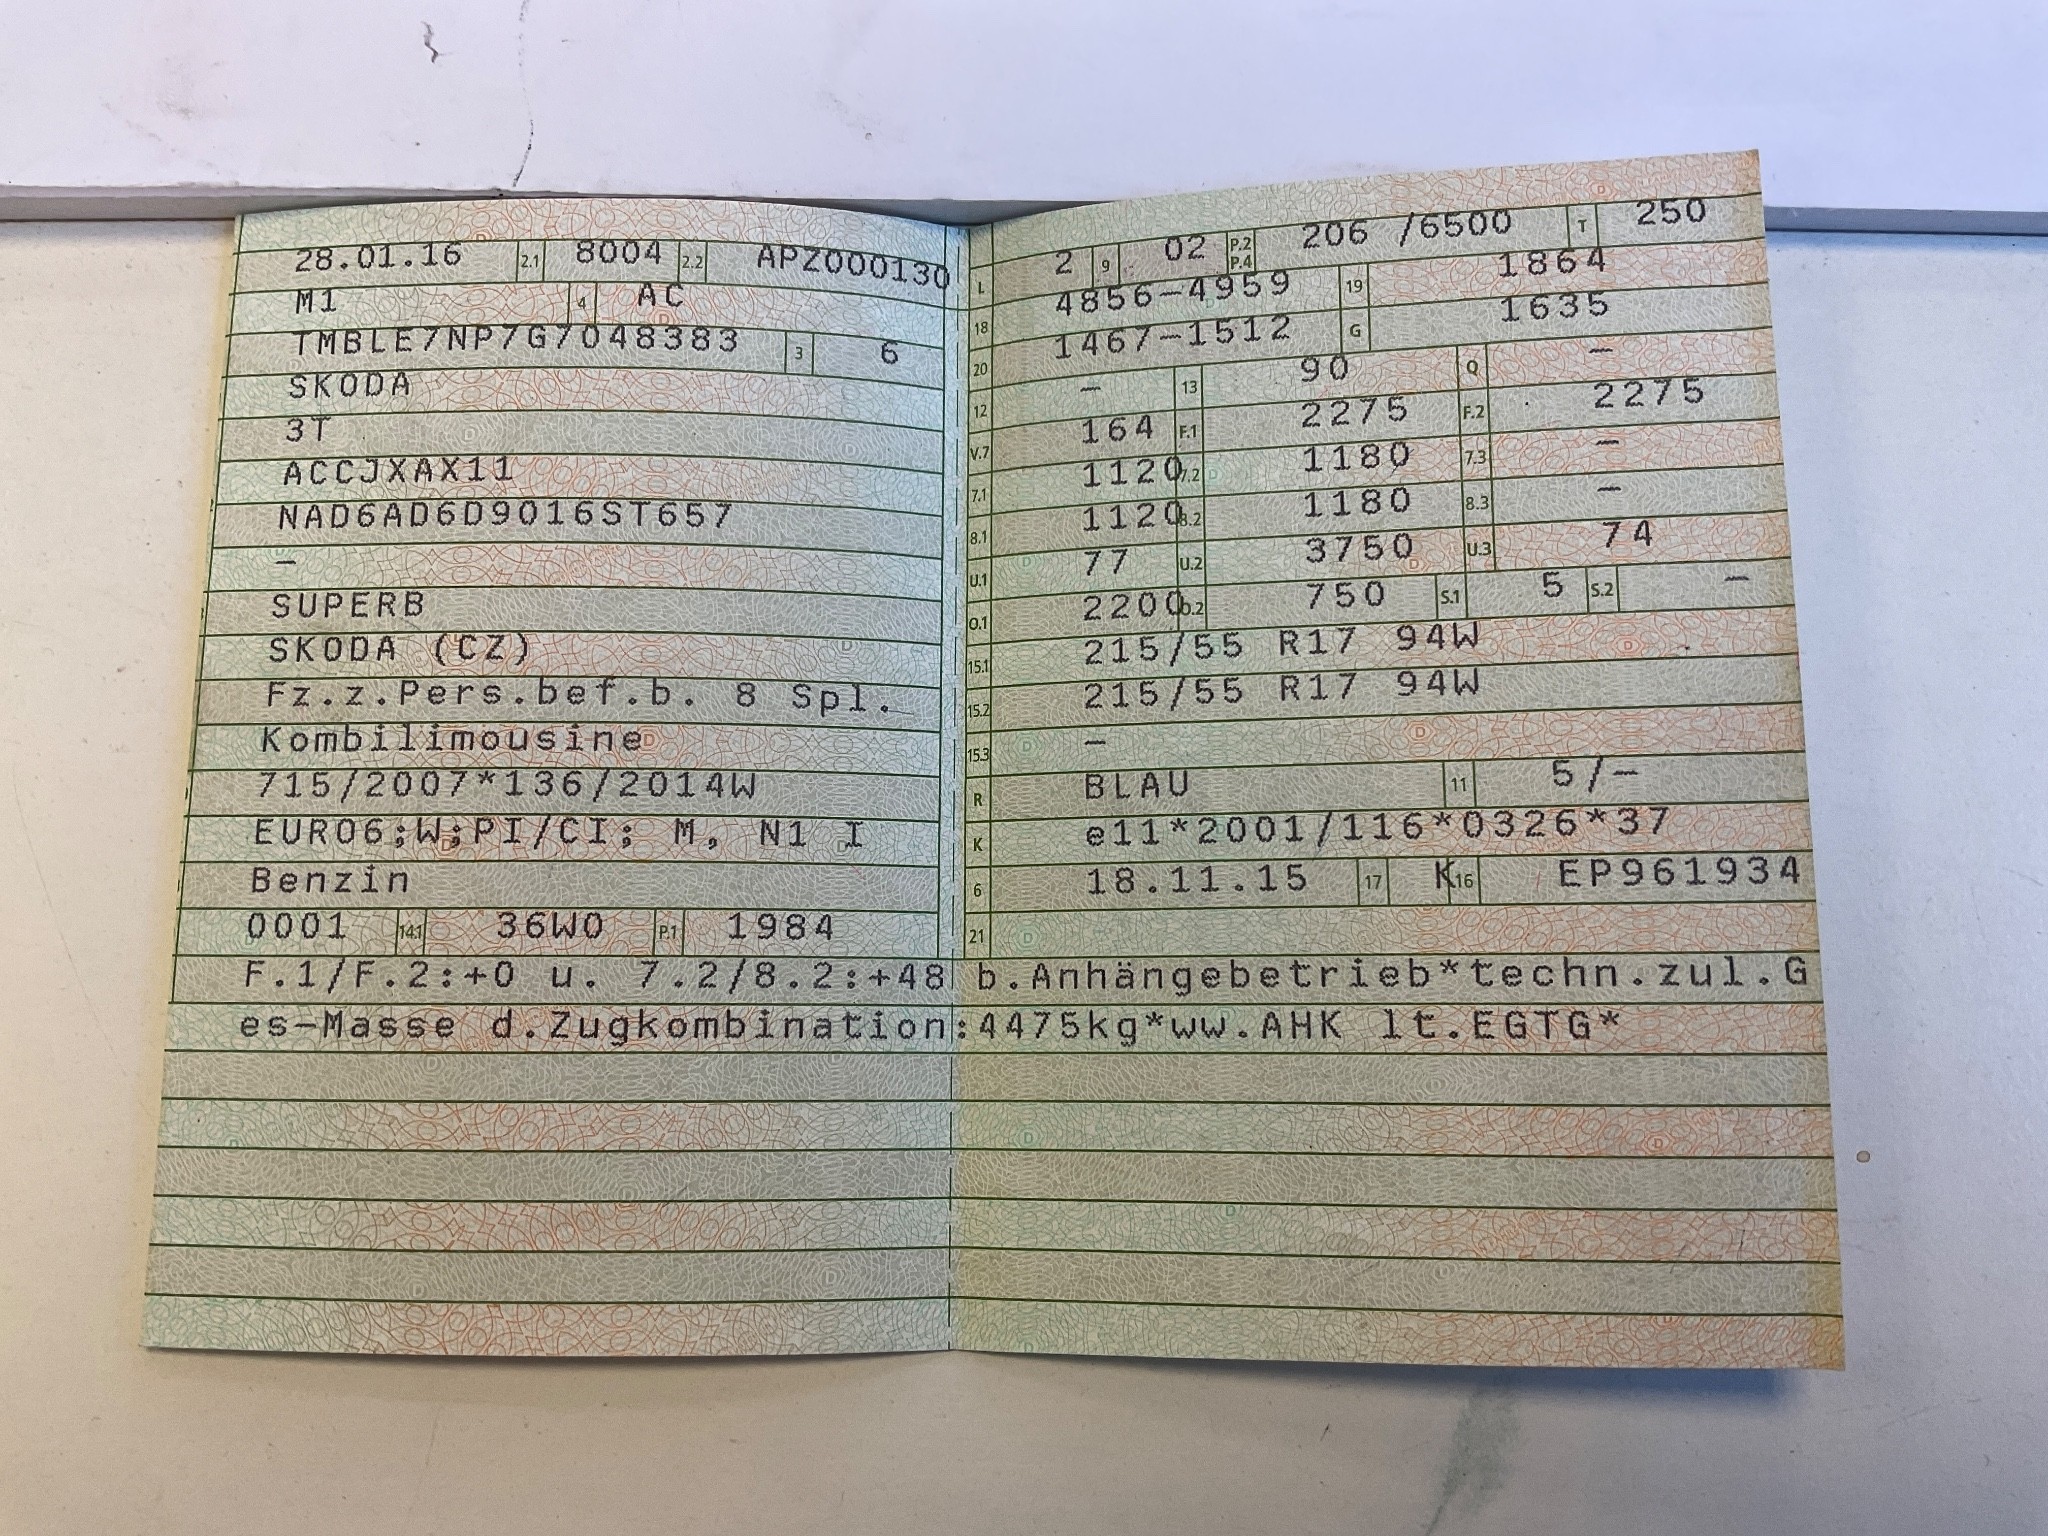 28.01.16 2.1 8004 2.2 APZ000130
M1 4 AC
TMBLE7NP7G7048383 3 6
SKODA
3T
ACCJXAX11
NAD6AD6D9016ST657
–
SUPERB
SKODA (CZ)
Fz.z.Pers.bef.b. 8 Spl.
Kombilimousine
715/2007*136/2014W
EURO6;W;PI/CI; M, N1 I
Benzin
0001 14.1 36W0 P.1 1984
L 2 9 02 P.2 P.4 206 /6500 T 250
18 4856–4959 19 1864
20 1467–1512 G 1635
12 – 13 90 Q –
V.7 164 F.1 2275 F.2 2275
7.1 1120 7.2 1180 7.3 –
8.1 1120 8.2 1180 8.3 –
U.1 77 U.2 3750 U.3 74
O.1 2200 O.2 750 S.1 5 S.2 –
15.1 215/55 R17 94W
15.2 215/55 R17 94W
15.3 –
R BLAU 11 5/–
K e11*2001/116*0326*37
6 18.11.15 17 K 16 EP961934
21
F.1/F.2:+0 u. 7.2/8.2:+48 b.Anhängebetrieb*techn.zul.G
es–Masse d.Zugkombination:4475kg*ww.AHK lt.EGTG*